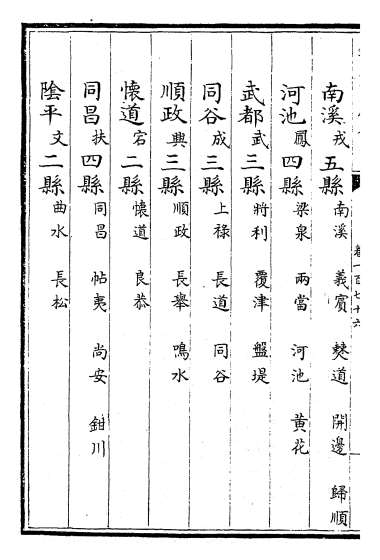 卷一百七十六
南溪戎五縣南溪 義賓 僰道 開邊 歸順
河池鳳四縣梁泉 兩當 河池 黄花
武都武三縣將利 覆津 盤堤
同谷成三縣上祿 長道 同谷
順政興三縣順政 長舉 鳴水
懷道宕二縣懷道 良恭
同昌扶四縣同昌 帖夷 尚安 鉗川
隂平文二縣曲水 長松